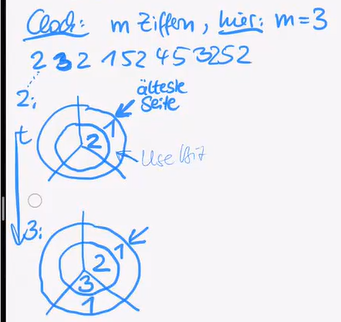 Clock: m Ziffern, hier: m=3
2 3 2 1 5 2 4 5 3 2 5 2
2:
älteste
Seite
1
2
Use Bit
t
3:
1
2
3
1